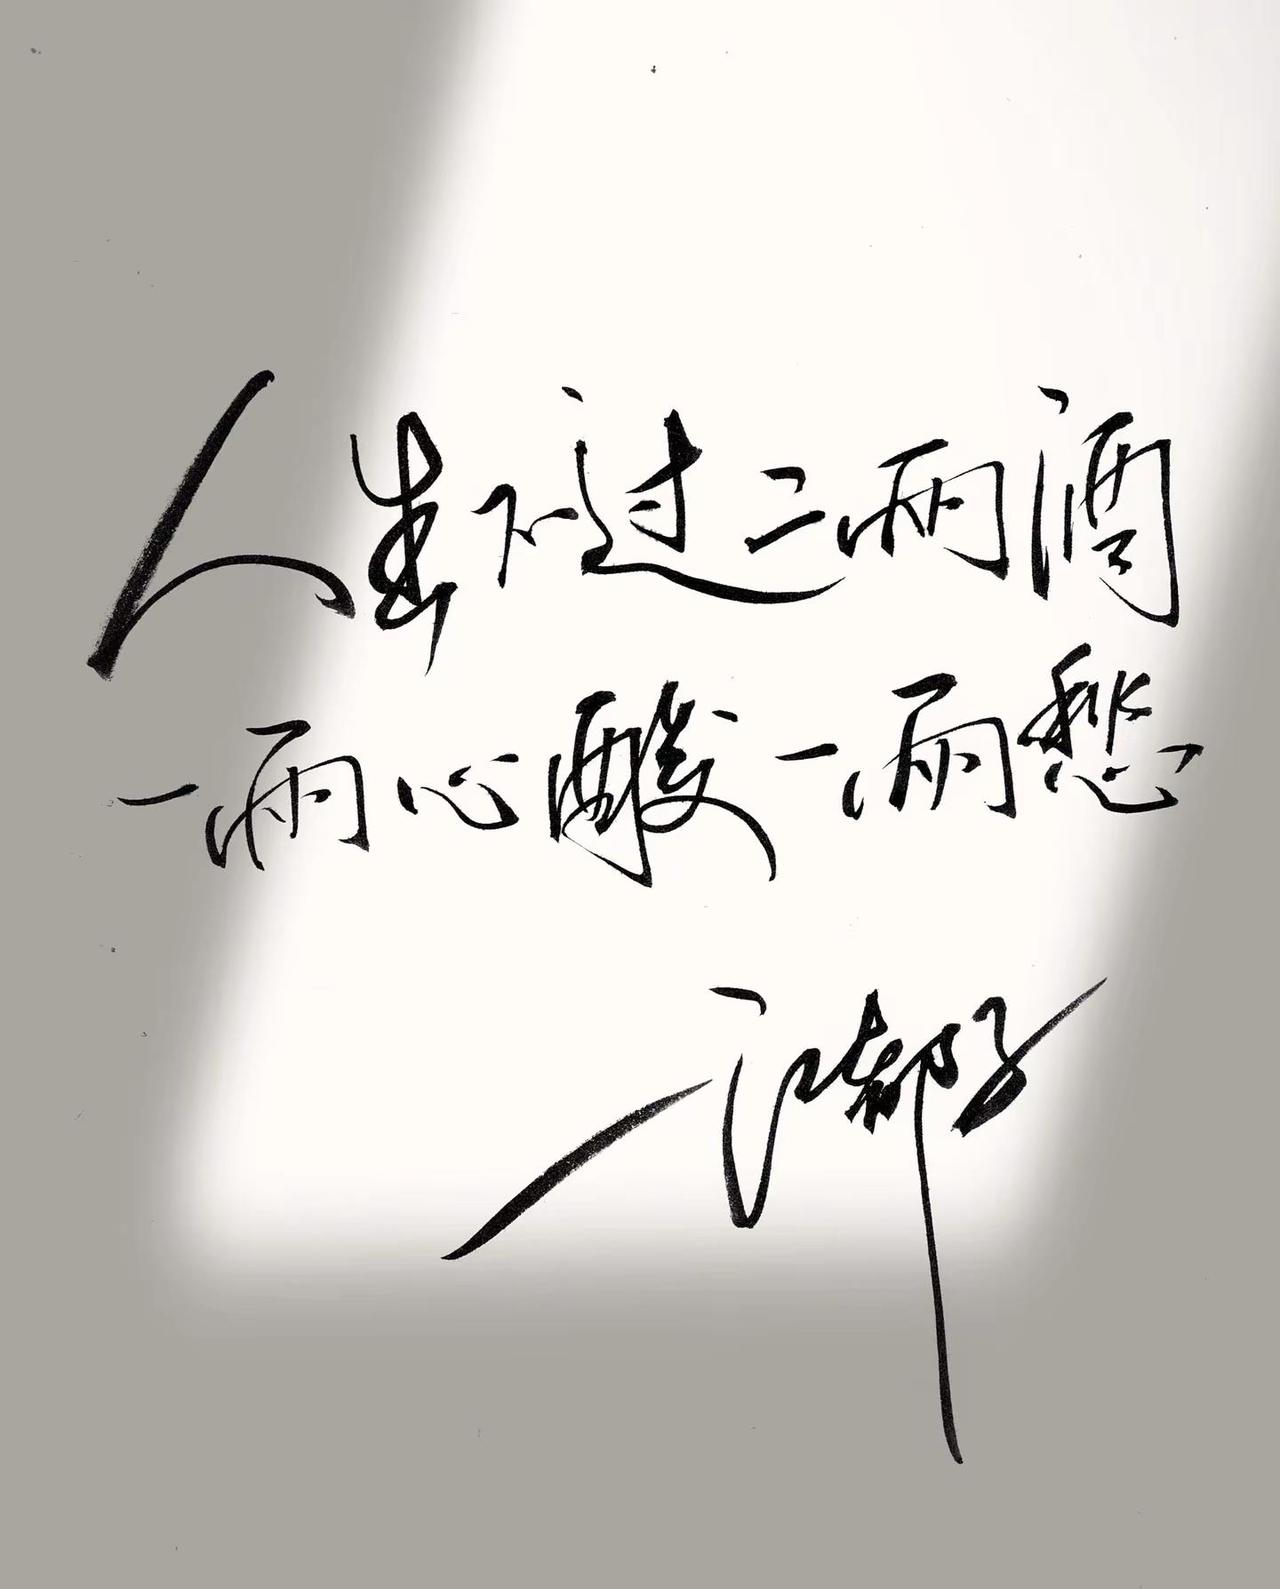 人生不过二两酒
一两心酸一两愁
江都子